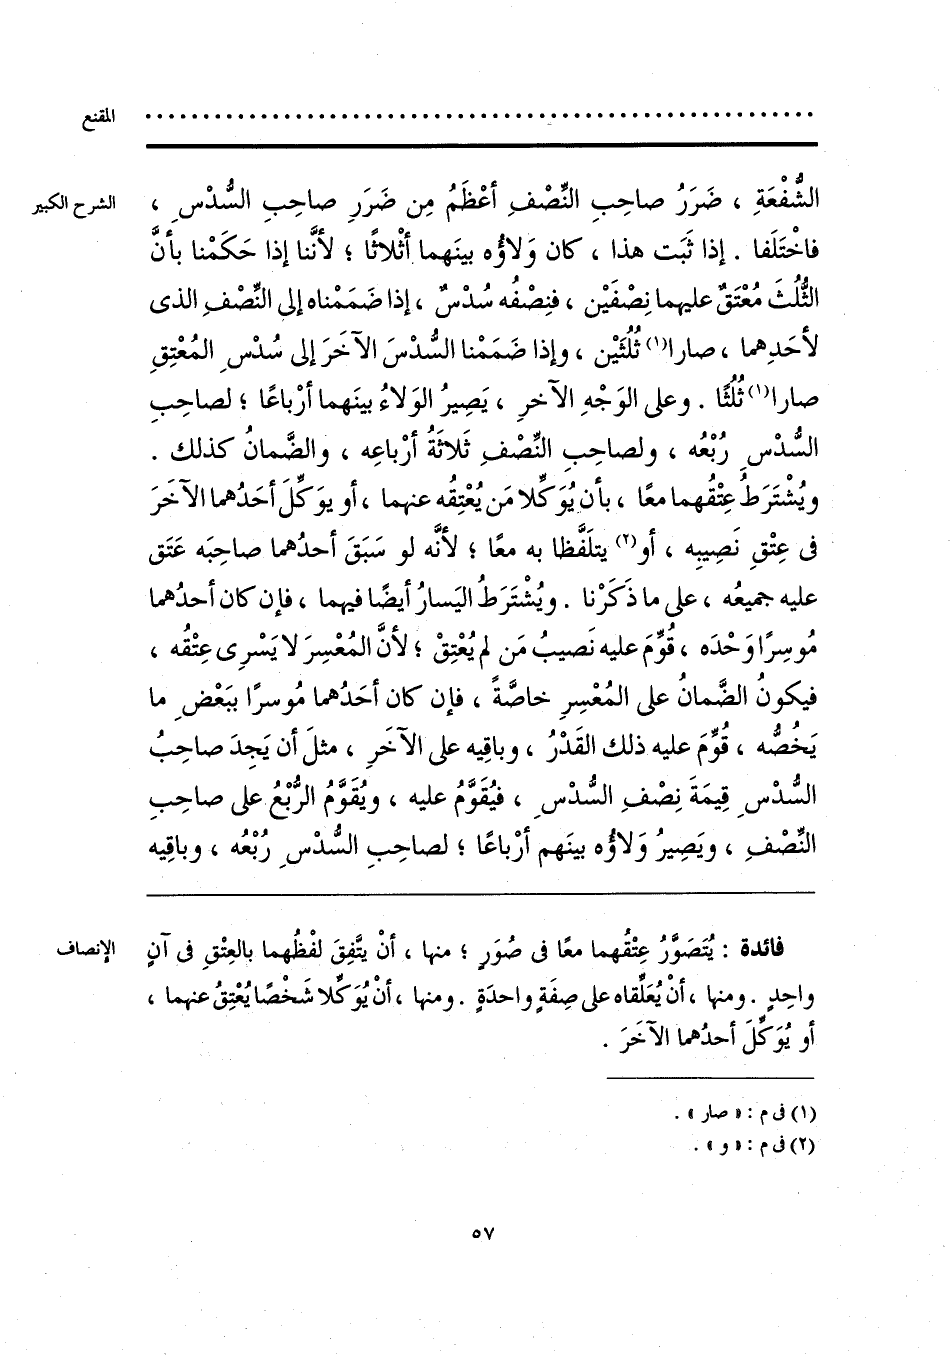 المقنع ........................................................
الشرح الكبير
الشُّفْعَةِ ، ضَرَرُ صاحِبِ النِّصْفِ أعْظَمُ مِن ضَرَرِ صاحِبِ السُّدْسِ ،
فاخْتَلَفا . إذا ثَبَت هذا ، كان وَلاؤُه بينَهما أثْلاثًا ؛ لأنَّنا إذا حَكَمْنا بأنَّ
الثُّلُثَ مُعْتَقٌ عليهما نِصْفَيْن ، فنِصْفُه سُدْسٌ ، إذا ضَمَمْناه إلى النِّصْفِ الذى
لأحَدِهما ، صارا(١) ثُلُثَيْن ، وإذا ضَمَمْنا السُّدْسَ الآخَرَ إلى سُدْسِ المُعْتِقِ
صارا(١) ثُلُثًا . وعلى الوَجْهِ الآخَرِ ، يَصِيرُ الوَلاءُ بينَهما أرْباعًا ؛ لصاحِبِ
السُّدْسِ رُبْعُه ، ولصاحِبِ النِّصْفِ ثَلاثَةُ أرْباعِه ، والضَّمانُ كذلك .
ويُشْتَرَطُ عِتْقُهما معًا ، بأن يُوَكِّلا مَن يُعْتِقُه عنهما ، أو يوَكِّلَ أحَدُهما الآخَرَ
فى عِتْقِ نَصِيبِه ، أو(٢) يتلَفَّظا به معًا ؛ لأنَّه لو سَبَقَ أحدُهما صاحِبَه عَتَق
عليه جميعُه ، على ما ذَكَرْنا . ويُشْتَرَطُ اليَسارُ أيضًا فيهما ، فإن كان أحدُهما
مُوسِرًا وَحْدَه ، قُوِّمَ عليه نَصيبُ مَن لم يُعْتِقْ ؛ لأنَّ المُعْسِرَ لا يَسْرِى عِتْقُه ،
فيكونُ الضَّمانُ على المُعْسِرِ خاصَّةً ، فإن كان أحَدُهما مُوسرًا ببَعْضِ ما
يَخُصُّه ، قُوِّمَ عليه ذلك القَدْرُ ، وباقِيه على الآخَرِ ، مثلَ أن يَجِدَ صاحِبُ
السُّدْسِ قِيمَةَ نِصْفِ السُّدْسِ ، فيُقَوَّمُ عليه ، ويُقَوَّمُ الرُّبْعُ على صاحِبِ
النِّصْفِ ، ويَصِيرُ وَلاؤُه بينَهم أرْباعًا ؛ لصاحِبِ السُّدْسِ رُبْعُه ، وباقِيه
الإنصاف
فائدة : يُتَصَوَّرُ عِتْقُهما معًا فى صُوَرٍ ؛ منها ، أنْ يَتَّفِقَ لفْظُهما بالعِتْقِ فى آنٍ
واحِدٍ . ومنها ، أنْ يُعَلِّقاه على صِفَةٍ واحدَةٍ . ومنها ، أنْ يُوَكِّلا شَخْصًا يُعْتِقُ عنهما ،
أو يُوَكِّلَ أحدُهما الآخَرَ .
(١) فى م : « صار » .
(٢) فى م : « و » .
٥٧